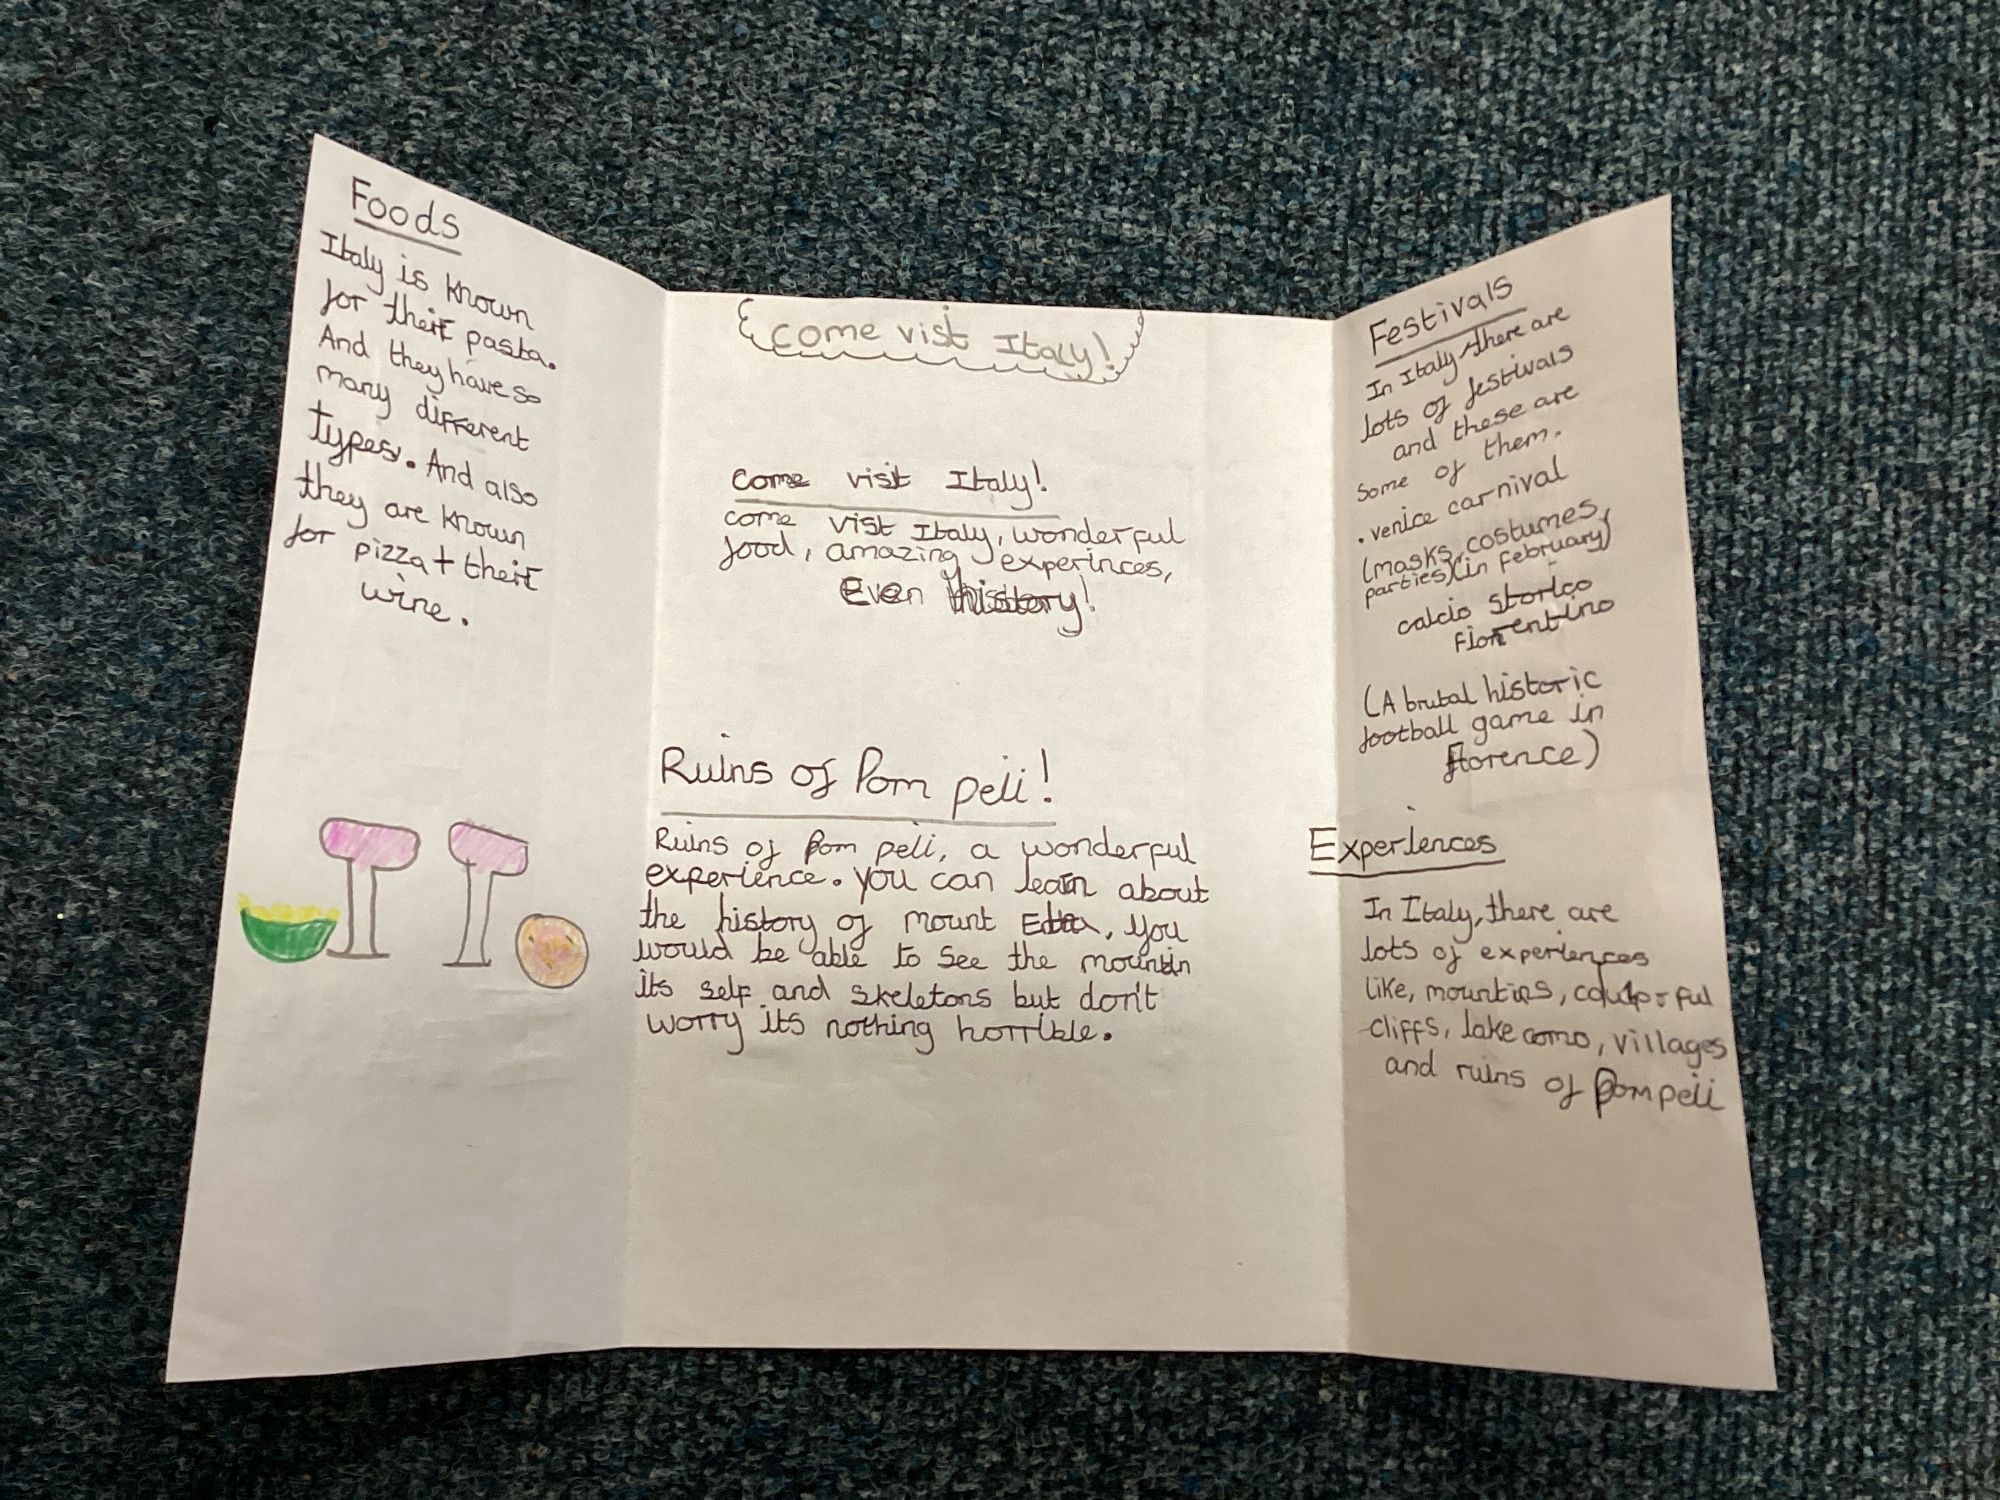 Foods
Italy is known
for their pasta.
And they have so
many different
types. And also
they are known
for pizza + their
wine.
come vist Italy!
come visit Italy!
come visit Italy, wonderful
food, amazing experinces,
Even history!
Ruins of Pom peli!
Ruins of Pom peli, a wonderful
experience. you can learn about
the history of mount Etta, you
would be able to see the mountin
its self and skeletons but don't
worry its nothing horrible.
Festivals
In Italy there are
lots of festivals
and these are
some of them.
. venice carnival
(masks, costumes,
parties)(in february)
calcio storico
Fiorentino
(A brutal historic
football game in
florence)
Experiences
In Italy, there are
lots of experiences
like, mountins, coulorful
cliffs, lake como, villages
and ruins of Pompeli